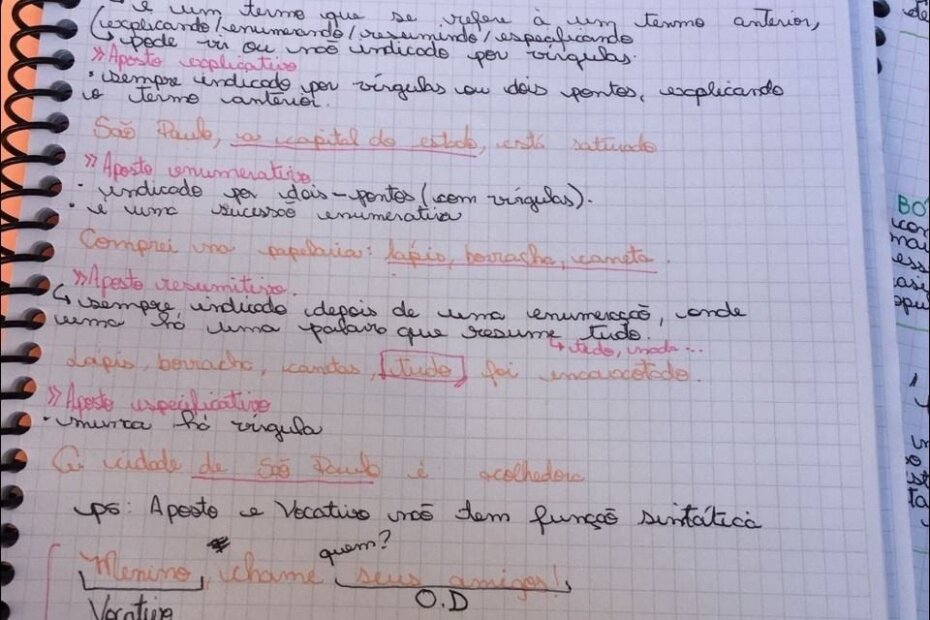 é um termo que se refere à um termo anterior,
explicando/enumerando/resumindo/especificando
pode vir ou não indicado por vírgulas.
» Aposto explicativo
• sempre indicado por vírgulas ou dois pontos, explicando
o termo anterior.
São Paulo, a capital do estado, está saturado
» Aposto enumerativo
• indicado por dois-pontos (com vírgulas).
• é uma sucessão enumerativa
Comprei na papelaria: lápis, borracha, caneta.
» Aposto resumitivo.
↳ sempre indicado depois de uma enumeração, onde
uma há uma palavra que resume tudo.
↳ tudo, nada...
Lápis, borracha, canetas, tudo foi encaixotado.
» Aposto especificativo
• nunca há vírgula
A cidade de São Paulo é acolhedora
ps: Aposto e Vocativo não tem função sintática
quem?
Menino, chame seus amigos!
Vocativo O.D
BO
mai
ess
asi